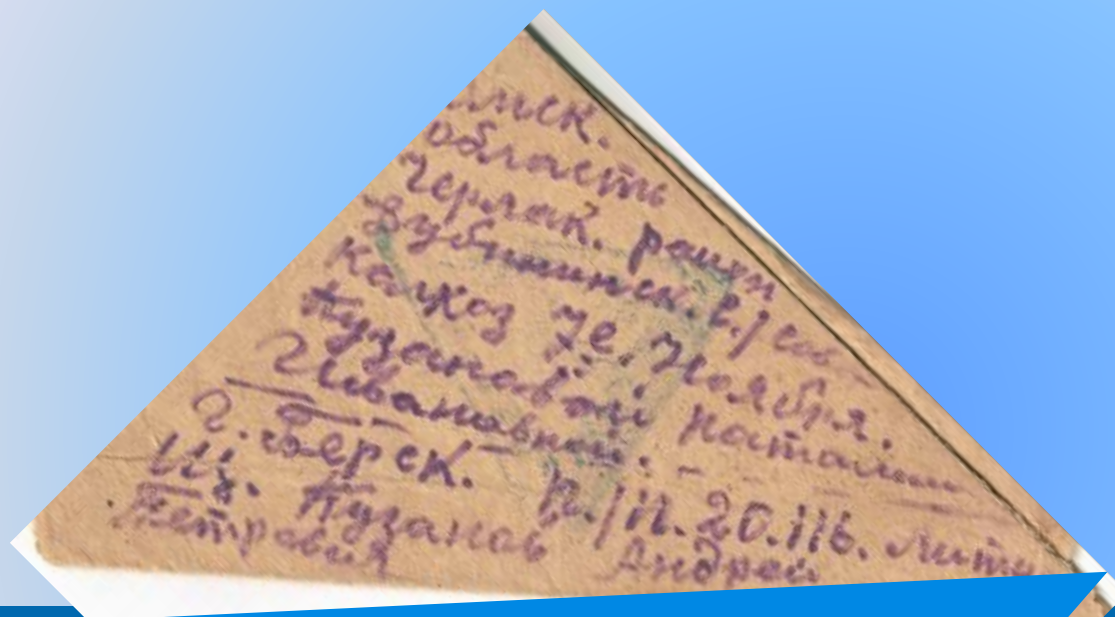 области
Черлак. район
колхоз 7е. Ноября.
Кузановой Наталии
Ивановной. -
г. Берск. п./п. 20.116. Литер
Из. Кузанов Андрей
Петрович